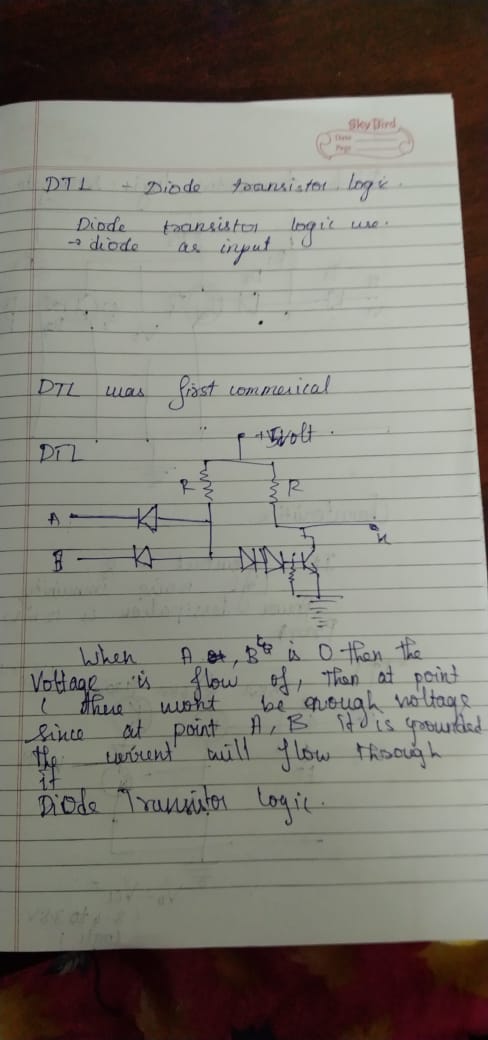 Sky Bird
Date
Page
DTL - Diode transistor logic.
Diode transistor logic use.
→ diode as input
DTL was first commerical
DTL
+5volt
R
R
A
B
When A , B is 0 then the
Voltage is flow of, then at point
( there wont be enough voltage
since at point A, B it is grounded
the current will flow through
it
Diode Transistor Logic.